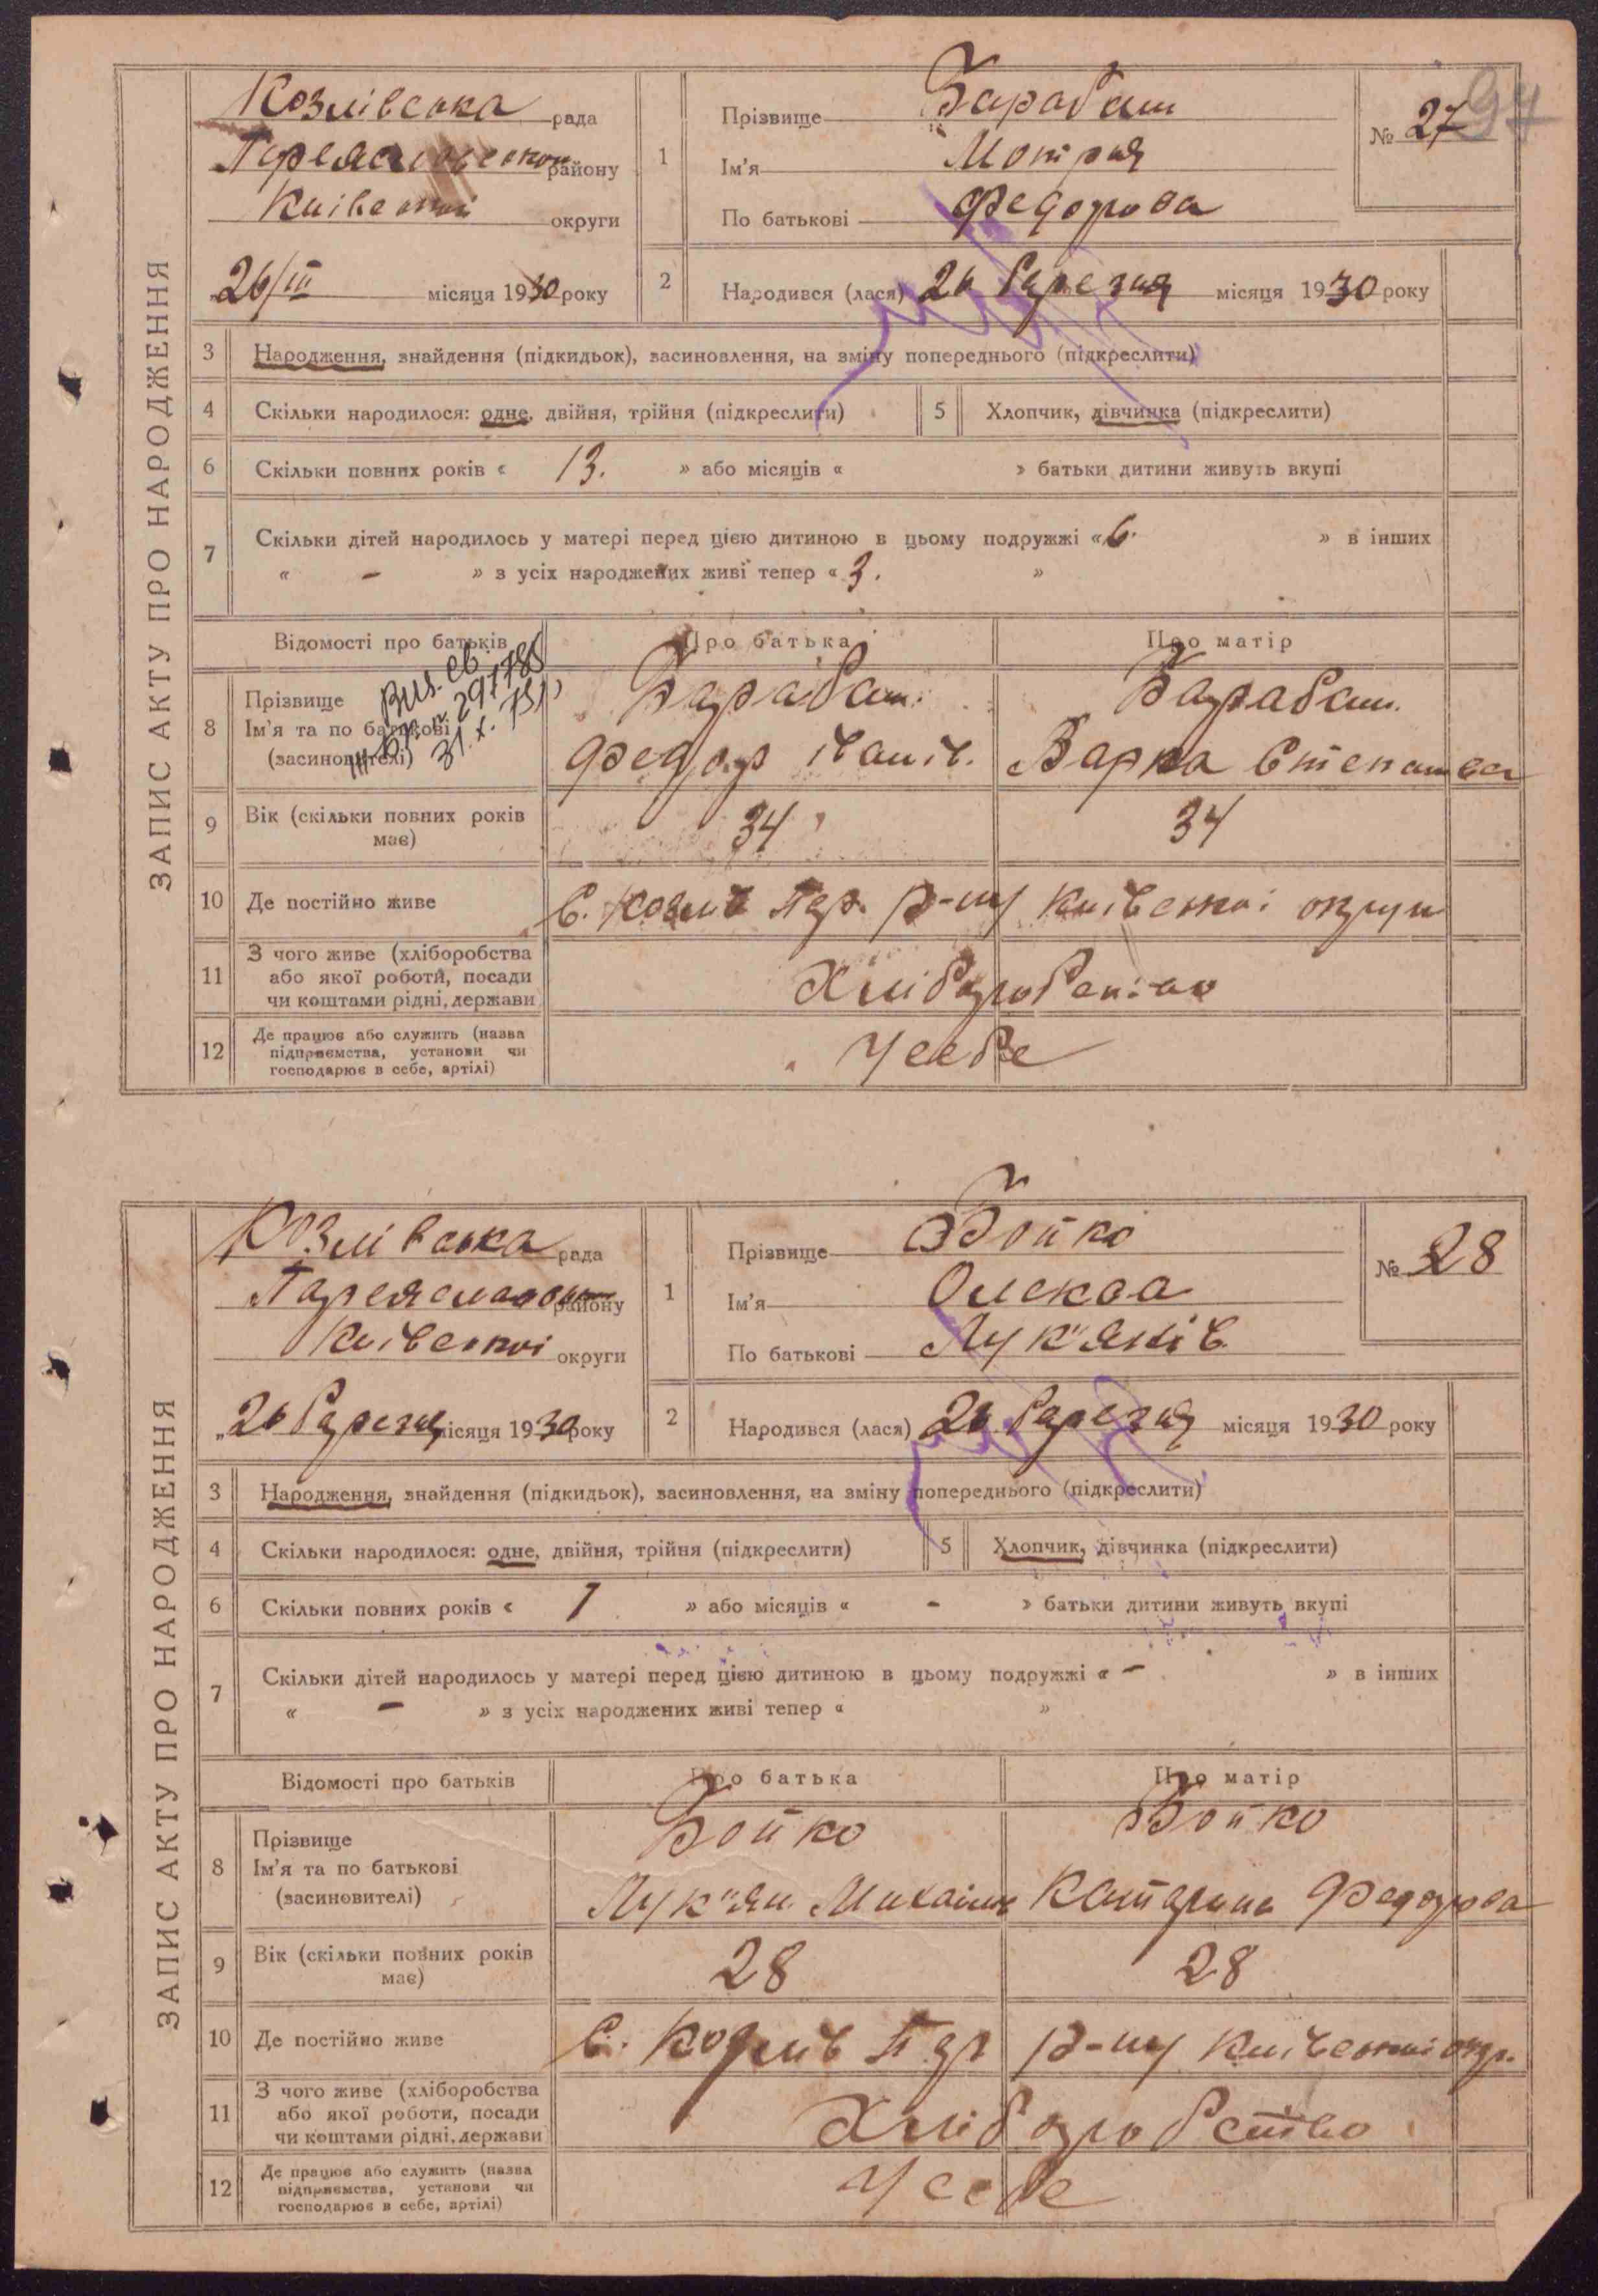 ЗАПИС АКТУ ПРО НАРОДЖЕННЯ
Козлівська рада
Переяславської району
Київської округи
„26/III місяця 1930 року
1 Прізвище Барабаш
Ім'я Мотря
По батькові Федорова
№ 27
94
2 Народився (лася) 26 березня місяця 1930 року
3 Народження, знайдення (підкидьок), засиновлення, на зміну попереднього (підкреслити)
4 Скільки народилося: одне, двійня, трійня (підкреслити) 5 Хлопчик, дівчинка (підкреслити)
6 Скільки повних років « 13. » або місяців « » батьки дитини живуть вкупі
7 Скільки дітей народилось у матері перед цією дитиною в цьому подружжі « 6. » в інших
« - » з усіх народжених живі тепер « 3. »
Відомості про батьків Про батька Про матір
8 Прізвище
Ім'я та по батькові
(засиновителі)
Вид. св.
291785
31.X.
Барабаш. Барабаш.
Федор Іванів. Варка Степанова
9 Вік (скільки повних років має) 34 34
10 Де постійно живе С. Козлів Пер. р-ну Київської округи
11 З чого живе (хліборобства або якої роботи, посади чи коштами рідні, держави Хліборобство
12 Де працює або служить (назва підприємства, установи чи господарює в себе, артілі) У себе
ЗАПИС АКТУ ПРО НАРОДЖЕННЯ
Козлівська рада
Переяславськ району
Київської округи
„26 березня місяця 1930 року
1 Прізвище Бойко
Ім'я Олекса
По батькові Лук'янів
№ 28
2 Народився (лася) 26 березня місяця 1930 року
3 Народження, знайдення (підкидьок), засиновлення, на зміну попереднього (підкреслити)
4 Скільки народилося: одне, двійня, трійня (підкреслити) 5 Хлопчик, дівчинка (підкреслити)
6 Скільки повних років « 1 » або місяців « - » батьки дитини живуть вкупі
7 Скільки дітей народилось у матері перед цією дитиною в цьому подружжі « - » в інших
« - » з усіх народжених живі тепер « »
Відомості про батьків Про батька Про матір
8 Прізвище
Ім'я та по батькові
(засиновителі)
Бойко Бойко
Лук'ян Михайлів Катарина Федорова
9 Вік (скільки повних років має) 28 28
10 Де постійно живе С. Козлів Пер р-ну Київської окр.
11 З чого живе (хліборобства або якої роботи, посади чи коштами рідні, держави Хліборобство
12 Де працює або служить (назва підприємства, установи чи господарює в себе, артілі) У себе